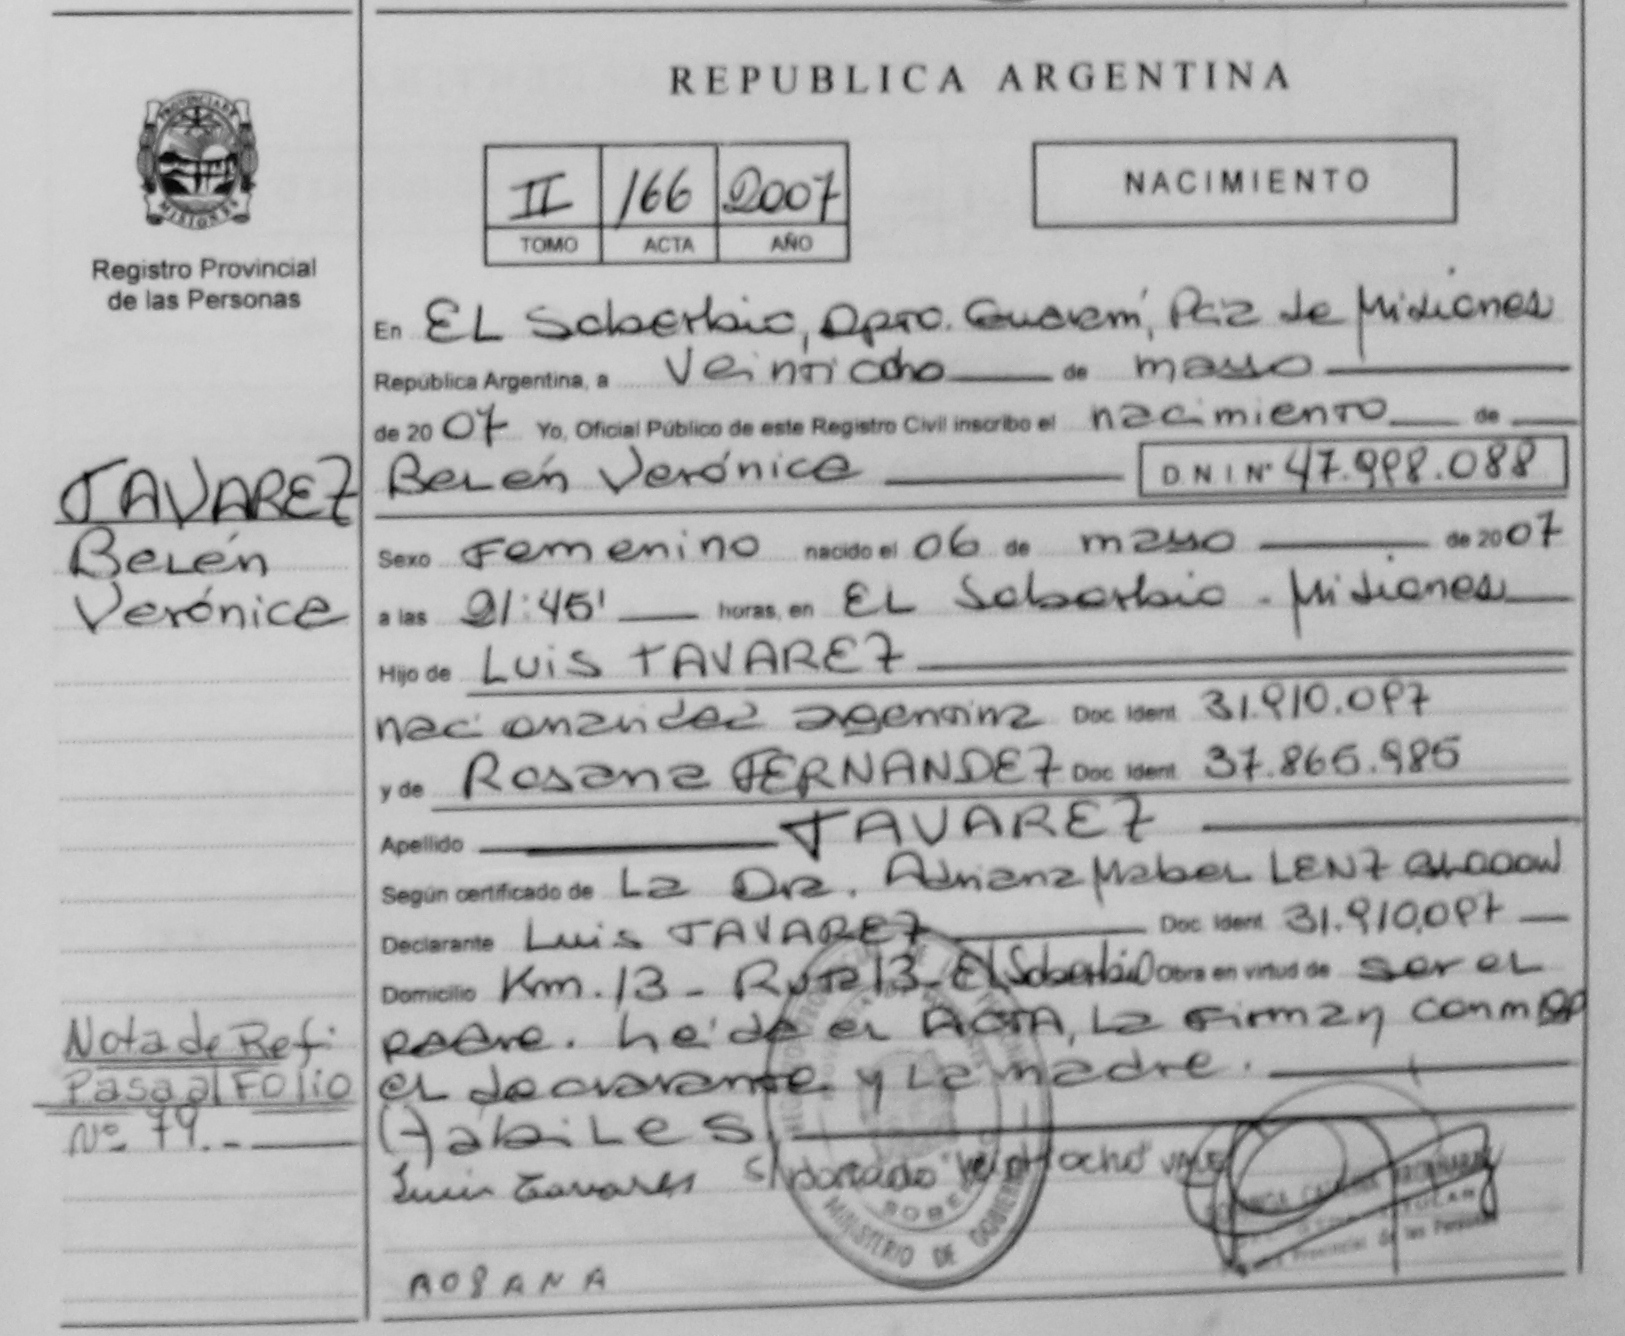 REPUBLICA ARGENTINA
PROVINCIA DE
MISIONES
Registro Provincial
de las Personas
II 166 2007
TOMO ACTA AÑO
NACIMIENTO
En EL Soberbio, Dpto. Guaraní, Pcia de Misiones
República Argentina, a Veintiocho de mayo
de 2007 Yo, Oficial Público de este Registro Civil inscribo el nacimiento de
TAVAREZ
Belén
Verónica
Belén Verónica D N I Nº 47.998.088
Sexo Femenino nacido el 06 de mayo de 2007
a las 21:45' horas, en EL Soberbio - Misiones
Hijo de Luis TAVAREZ
nacionalidad argentina Doc. Ident. 31.910.097
y de Rosana FERNANDEZ Doc. Ident. 37.865.985
Apellido TAVAREZ
Según certificado de La Dra. Adriana Mabel LENZ
Declarante Luis TAVAREZ Doc. Ident. 31.910.097
Domicilio Km. 13 - Ruta 13 - El Soberbio Obra en virtud de ser el
padre. Leída el ACTA, la firman conmigo
el declarante y la madre.
Hábiles
Nota de Ref:
Pasa al Folio
Nº 79.-
Luis Tavares S/ "Veintiocho" VALE
MINISTERIO DE GOBIERNO
Provincial de las Personas
ROSANA